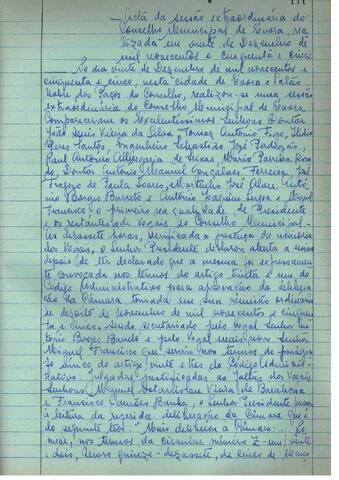 171
Acta da sessão extraordinária do
Conselho Municipal de Évora, rea
lizada em vinte de Dezembro de
mil novecentos e cinquenta e cinco.
No dia vinte de Dezembro de mil novecentos e
cinquenta e cinco, nesta cidade de Évora e Salão
Nobre dos Paços do Concelho, realizou-se uma sessão
extraordinária do Conselho Municipal de Évora
Compareceram os Excelentíssimos Senhores Doutor
João Luís Vieira da Silva, Tomaz António Fixo, Ilídio
Peres Santos, Engenheiro Sebastião José Perdigão,
Raul António de Seixas, Mário Parreira
Doutor António Manuel Gonçalves Ferreira, José
de Paula Soares, Martinho José Antó
nio Borges Barreto e António Joaquim Serpa e Miguel
Francisco o primeiro na qualidade de Presidente
e os restantes de Vogais do Conselho Municipal.
Às dezassete horas, verificada a presença da maioria
dos Vogais, o Senhor Presidente declarou aberta a sessão
depois de ter declarado que a mesma foi expressamen
te convocada nos termos do artigo trinta e um do
Código Administrativo para aprovação da delibera
ção da Câmara, tomada em sua reunião ordinária
de dezoito de Novembro de mil novecentos e cinquen
ta e cinco. Sendo secretariado pelo Vogal Senhor An
tónio Borges Barreto e pelo Vogal mais novo Senhor
Miguel Francisco que serviu nos termos do parágra
fo único do artigo vinte e três do Código Adminis-
trativo. Julgadas justificadas as faltas dos Vogais
Senhores Manuel Vieira de Barahona
e Francisco Camões o Senhor Presidente passou
à leitura da referida deliberação da Câmara que é
do seguinte teor: "Mais deliberou a Câmara:
nos termos da circular número Z-um, vinte
e dois, quinze-dezassete, de cinco de Março